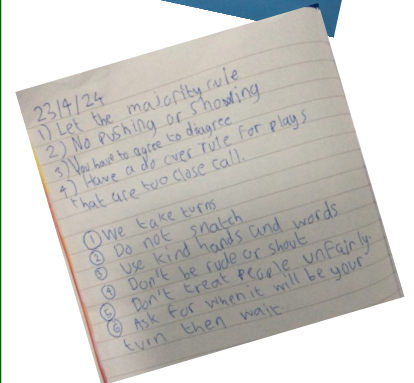 23/4/24
1) Let the majority rule
2) No pushing or shoving
3) You have to agree to disagree
4) Have a do over rule for plays
that are too close call.
① We take turns
② Do not snatch
③ Use kind hands and words
④ Don't be rude or shout
⑤ Don't treat people unfairly.
⑥ Ask for when it will be your
turn then wait